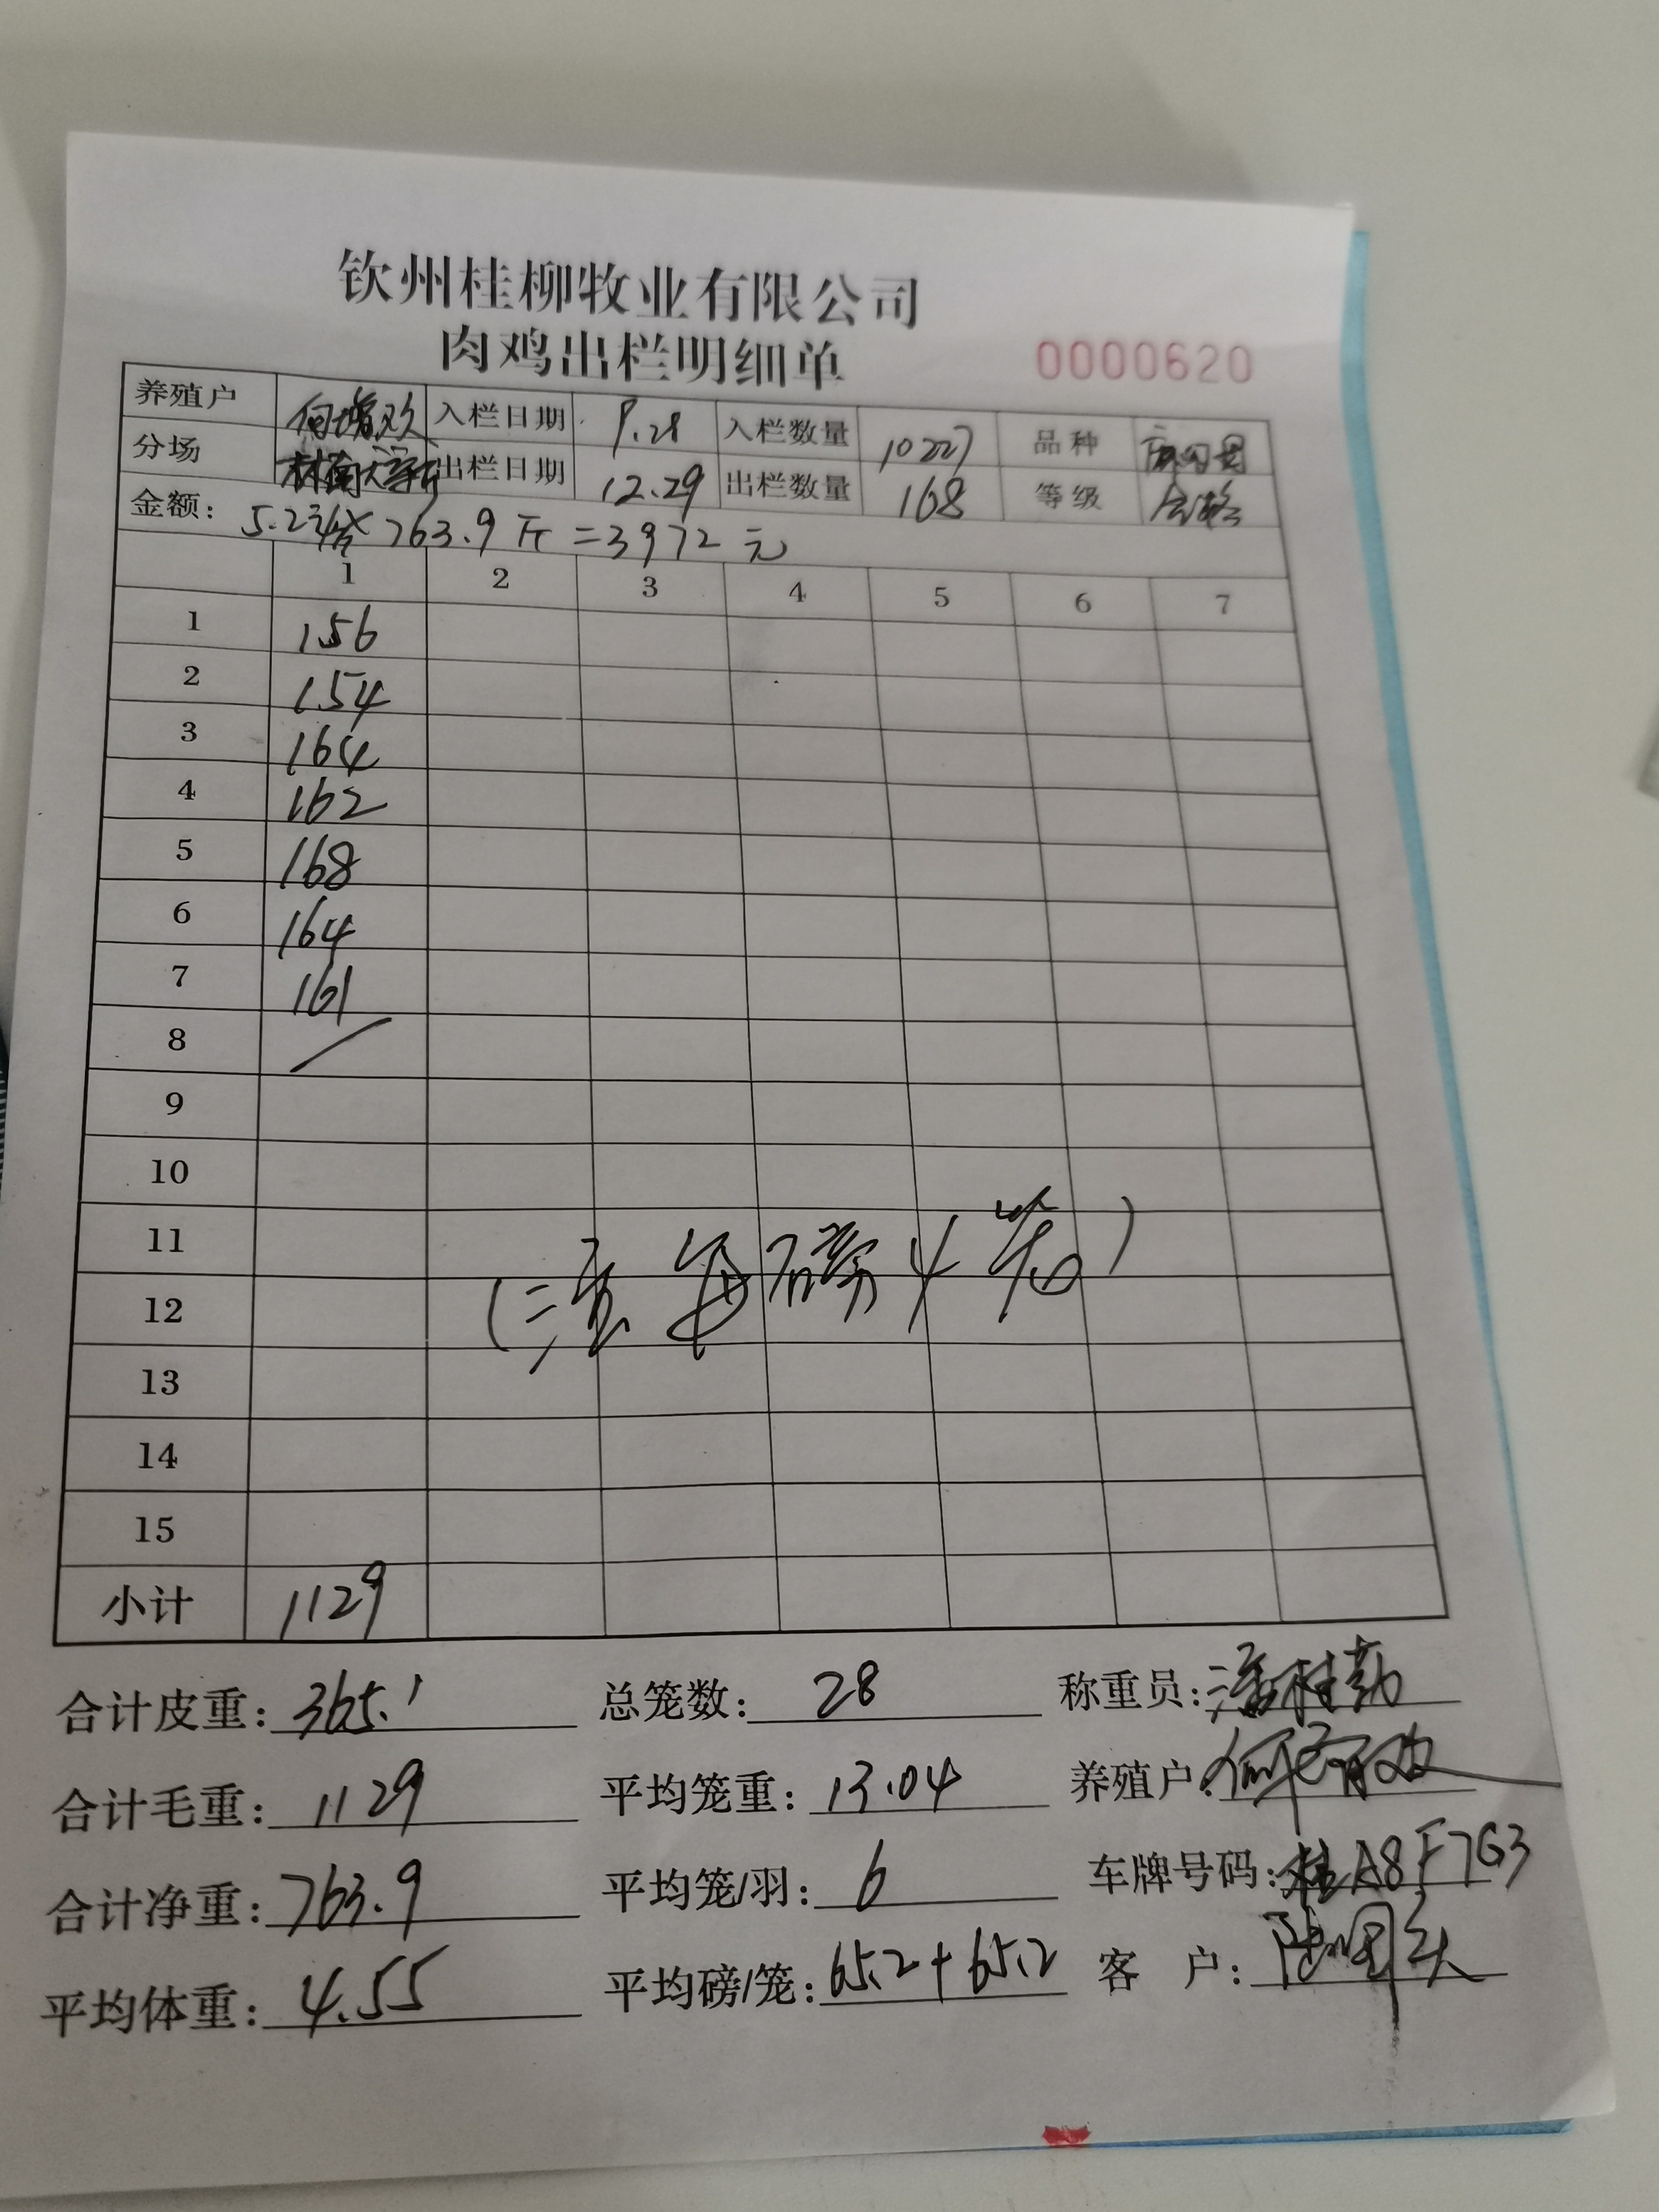 钦州桂柳牧业有限公司
肉鸡出栏明细单 0000620
养殖户 入栏日期 9.28 入栏数量 10227 品种
分场 出栏日期 12.29 出栏数量 168 等级 合格
金额: 5.2 × 763.9 斤 = 3972 元
1 2 3 4 5 6 7
1 156
2 154
3 164
4 162
5 168
6 164
7 161
8
9
10
11
12
(注 每磅 4 笼)
13
14
15
小计 1129
合计皮重: 365.1 总笼数: 28 称重员: 潘桂勤
合计毛重: 1129 平均笼重: 13.04 养殖户:
合计净重: 763.9 平均笼/羽: 6 车牌号码: 桂A8F7G3
平均体重: 4.55 平均磅/笼: 65.2+65.2 客 户: